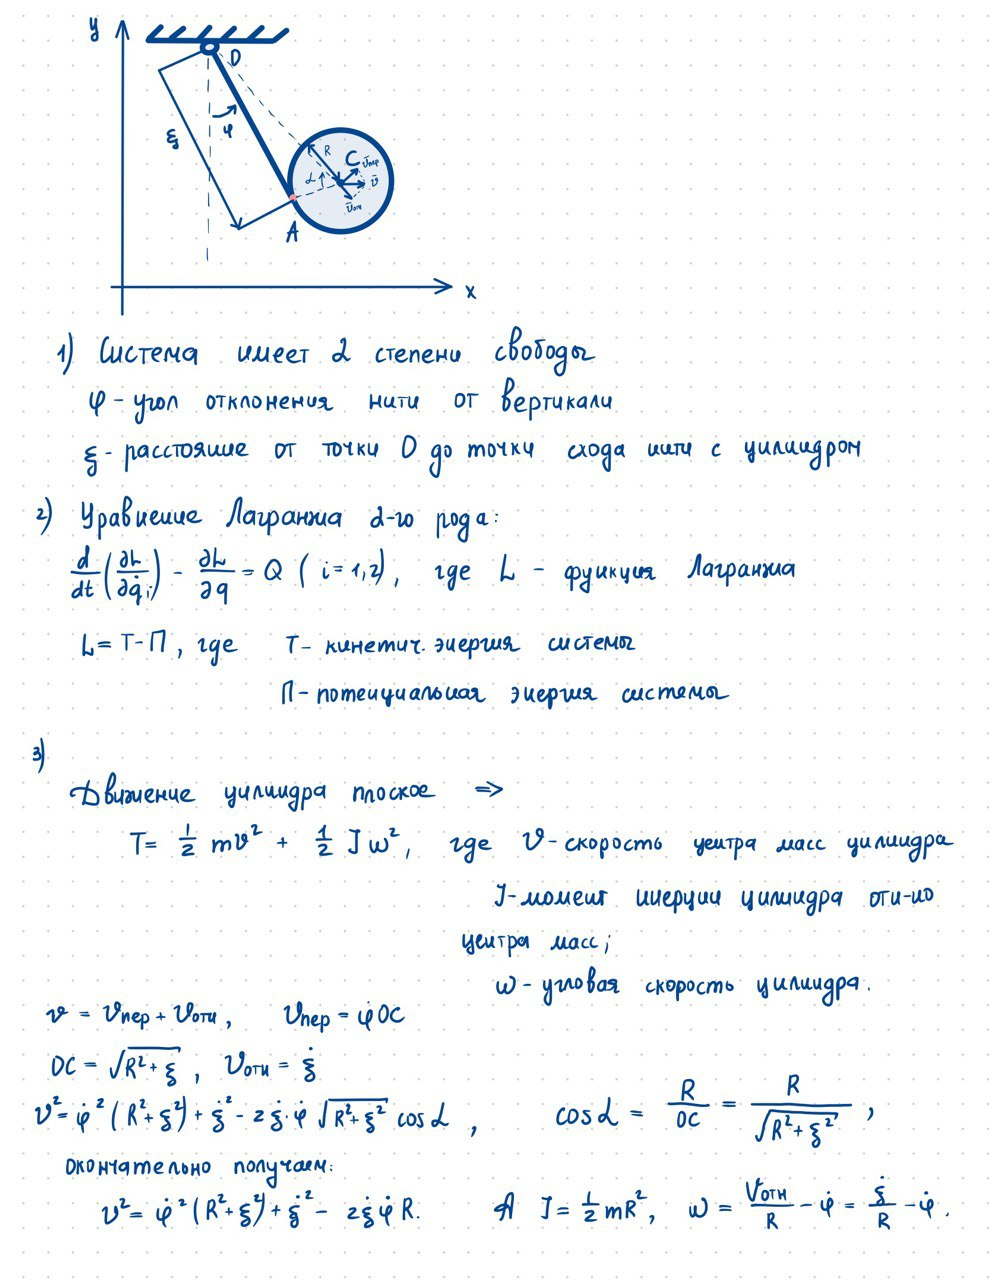 y
D
ξ
φ
R
C
v̄пер
v̄
α
v̄отн
A
x
1) Система имеет 2 степени свободы
φ - угол отклонения нити от вертикали
ξ - расстояние от точки O до точки схода нити с цилиндром
2) Уравнение Лагранжа 2-го рода:
d/dt (∂L/∂q̇i) - ∂L/∂q = Q ( i = 1,2), где L - функция Лагранжа
L = T-П, где T - кинетич. энергия системы
П - потенциальная энергия системы
3)
Движение цилиндра плоское ⇒
T = 1/2 mv² + 1/2 Jω², где v - скорость центра масс цилиндра
J - момент инерции цилиндра отн-но
центра масс;
ω - угловая скорость цилиндра.
v = vпер + vотн, vпер = φ̇ OC
OC = √(R²+ξ), vотн = ξ̇
v² = φ̇²(R²+ξ²) + ξ̇² - 2ξ̇·φ̇ √(R²+ξ²) cos α, cos α = R/OC = R/√(R²+ξ²),
окончательно получаем:
v² = φ̇²(R²+ξ²) + ξ̇² - 2ξ̇φ̇R. А J = 1/2 mR², ω = Vотн/R - φ̇ = ξ̇/R - φ̇.